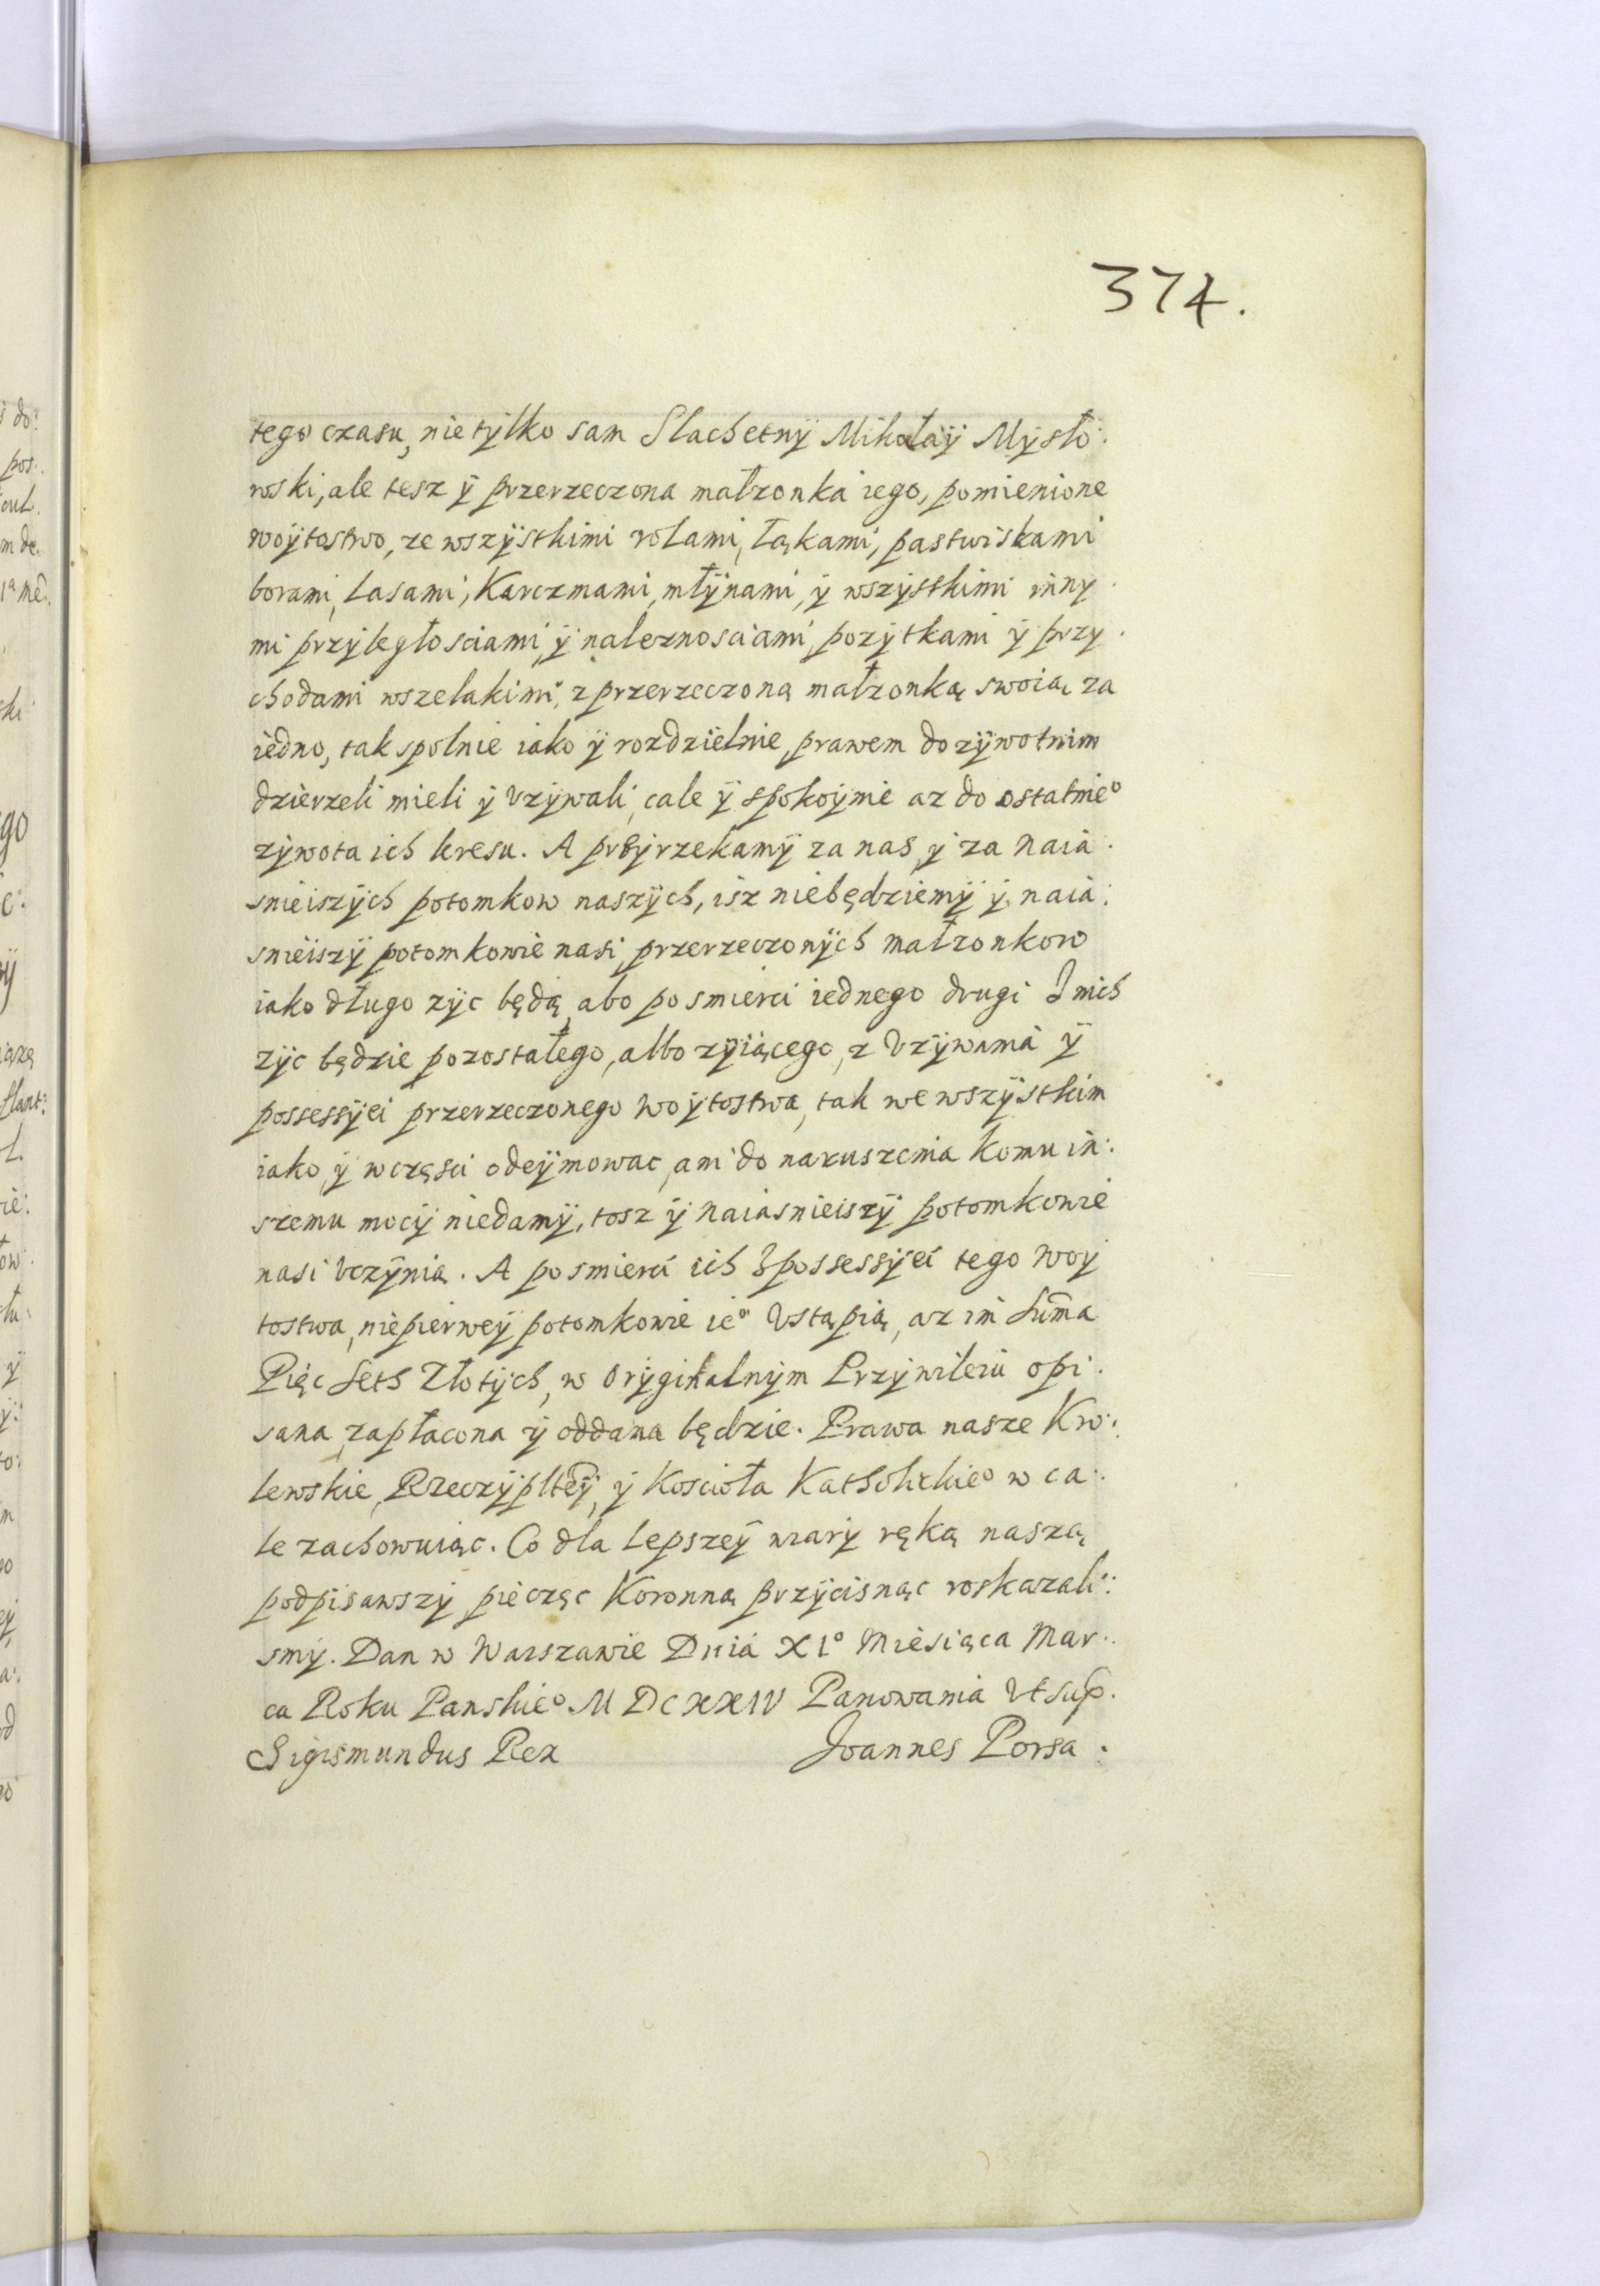 374.
tego czasu, nietylko sam Slachetnÿ Mikołaÿ Mÿsło:
wski, ale tesz ÿ przerzeczona małzonka iego, pomienione
woÿtostwo, ze wszÿsthimi rolami, łąkami, pastwiskami
borami, lasami, Karczmami, młÿnami, ÿ wszÿsthimi inny
mi przÿległosciami, ÿ naleznosciami, pozÿtkami ÿ przy
chodami wszelakimi, z przerzeczoną małzonką swoią za
iedno, tak spolnie iako ÿ rozdzielnie, prawem dozÿwotnim
dzierzeli mieli ÿ vzÿwali, cale ÿ spokoÿnie az do ostatnieº
zÿwota ich kresu. A przÿrzekamÿ za nas, ÿ za naia:
snieiszÿch potomkow naszÿch, isz niebędziemÿ ÿ naia:
snieiszÿ potomkowie nasi, przerzeczonÿch małzonkow
iako długo zÿc będą, abo po smierci iednego drugi Znich
zÿc będzie pozostałego, albo zÿiącego, z vzÿwania ÿ
possessÿei przerzeczonego woÿtostwa, tak we wszÿsthim
iako, ÿ w częsci odeÿmowac, ani do naruszenia komu in:
szemu mocÿ niedamÿ, tosz ÿ naiasnieiszÿ potomkowie
nasi vczÿnią. A po smierci ich z possessÿei tego Woÿ
tostwa, niepierweÿ potomkowie ieº vstąpią, az im sum̄a
Pięc seth Złotÿch, w orÿginalnÿm Przÿwileiu opi:
sana, zapłacona ÿ oddana będzie. Prawa nasze Kro:
lewskie, Rzeczÿpltēÿ, ÿ Kościoła Katholickieº w ca:
le zachowuiąc. Co dla lepszeÿ wiarÿ ręką naszą
podpisawszÿ pieczęc Koronną przÿcisnąc roskazali:
smÿ. Dan w Warszawie Dnia XIº Miesiąca Mar:
ca Roku Panskieº MDCXXIV Panowania Vt sup.
Sigismundus Rex Joannes Porsa.